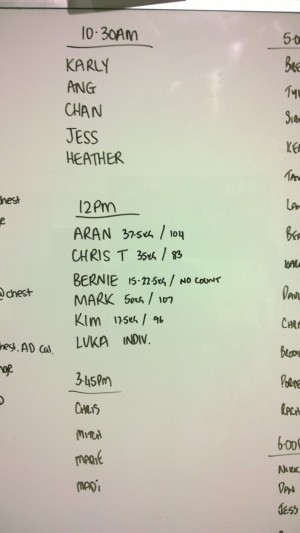 10·30AM
KARLY
ANG
CHAN
JESS
HEATHER
12PM
ARAN 37.5KG / 104
CHRIS T 35KG / 83
BERNIE 15-22.5KG / NO COUNT
MARK 50KG / 107
KIM 17.5KG / 96
LUKA INDIV.
3·45PM
CHRIS
MITCH
MARIE
MADI
chest
@chest
hest. AD Cal
nge
5·0
BRE
TY
KE
TAN
LA
BE
DAV
CHR
BROO
PORTE
RACH
6:00P
NICK
DAN
JESS